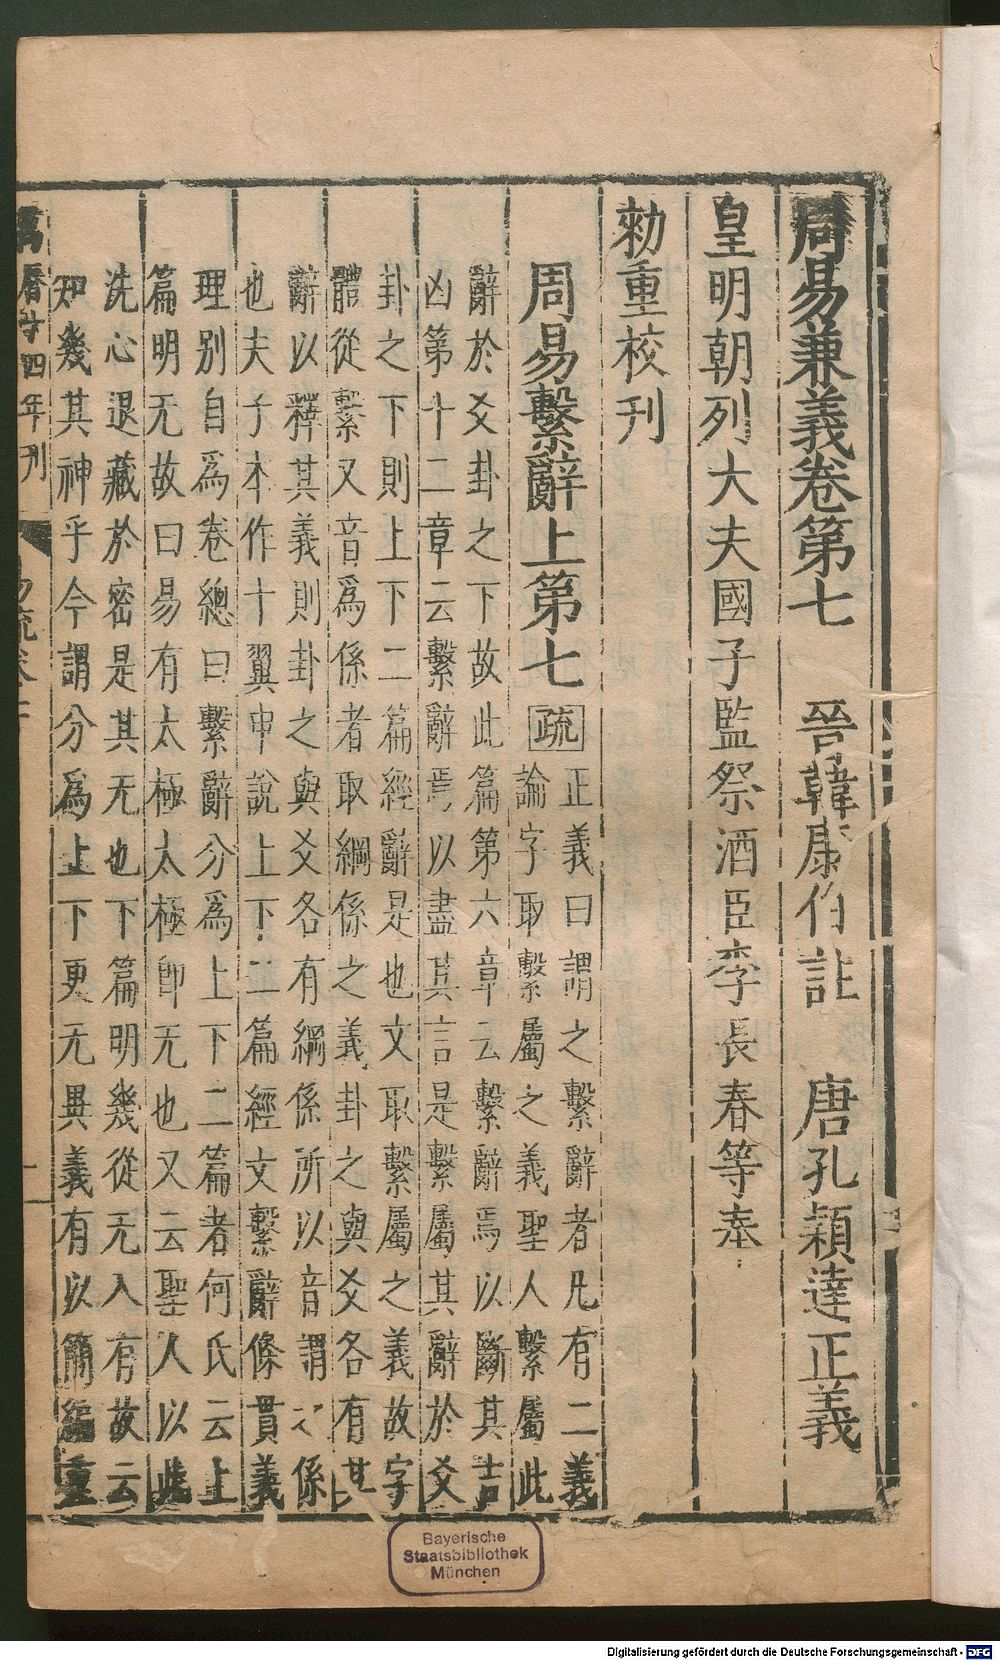 周易兼義卷第七　晉韓康伯註　唐孔穎達正義
皇明朝列大夫國子監祭酒臣李長春等奉
勑重校刊
周易繫辭上第七
疏
正義曰謂之繫辭者凡有二義
論字取繫屬之義聖人繫屬此
辭於爻卦之下故此篇第六章云繫辭焉以斷其吉
凶第十二章云繫辭焉以盡其言是繫屬其辭於爻
卦之下則上下二篇經辭是也文取繫屬之義故字
體從繫又音為係者取綱係之義卦之與爻各有其
辭以釋其義則卦之與爻各有綱係所以音謂之係
也夫子本作十翼申說上下二篇經文繫辭條貫義
理別自為卷總曰繫辭分為上下二篇者何氏云上
篇明无故曰易有太極太極即无也又云聖人以此
洗心退藏於密是其无也下篇明幾從无入有故云
知幾其神乎今謂分為上下更无異義有以簡編重
萬曆十四年刊
易疏卷七
一
Bayerische
Staatsbibliothek
München
Digitalisierung gefördert durch die Deutsche Forschungsgemeinschaft - DFG